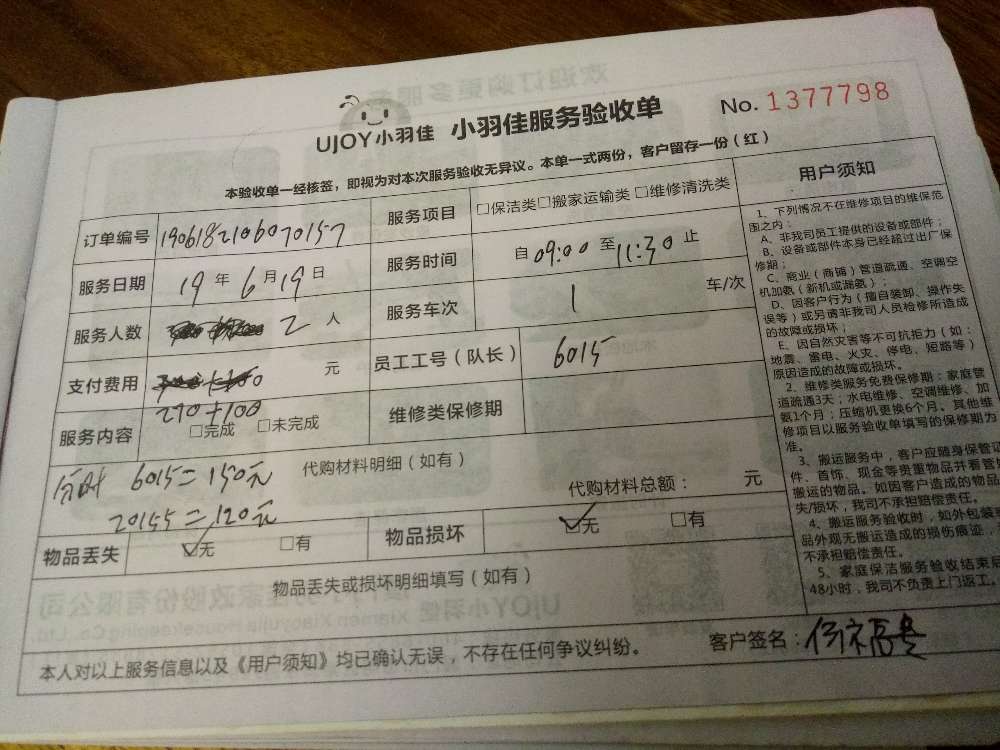 UJOY小羽佳 小羽佳服务验收单 No. 1377798
本验收单一经核签，即视为对本次服务验收无异议。本单一式两份，客户留存一份（红）
订单编号 190618210607015 服务项目 □保洁类□搬家运输类 □维修清洗类
服务日期 19 年 6 月 19 日 服务时间 自 09:00 至 11:30 止
服务人数 2 人 服务车次 1 车/次
支付费用 270+100 元 员工工号（队长） 6015
服务内容 □完成 □未完成 维修类保修期
代购材料明细（如有）
6015=150元
20155=120元 代购材料总额： 元
物品丢失 ☑无 □有 物品损坏 ☑无 □有
物品丢失或损坏明细填写（如有）
本人对以上服务信息以及《用户须知》均已确认无误，不存在任何争议纠纷。 客户签名：
用户须知
1、下列情况不在维修项目的维保范
围之内：
A、非我司员工提供的设备或部件；
B、设备或部件本身已经超过出厂保
修期；
C、商业（商铺）管道疏通、空调空
机加氨（新机或漏氨）；
D、因客户行为（擅自装卸、操作失
误等）或另请非我司人员检修所造成
的故障或损坏；
E、因自然灾害等不可抗拒力（如：
地震、雷电、火灾、停电、短路等）
原因造成的故障或损坏。
2、维修类服务免费保修期：家庭管
道疏通3天；水电维修、空调维修、加
氨1个月；压缩机更换6个月。其他维
修项目以服务验收单填写的保修期为
准。
3、搬运服务中，客户应随身保管证
件、首饰、现金等贵重物品并看管
搬运的物品。如因客户造成的物品
失/损坏，我司不承担赔偿责任。
4、搬运服务验收时，如外包装
品外观无搬运造成的损伤痕迹，
不承担赔偿责任。
5、家庭保洁服务验收结束后
48小时，我司不负责上门返工。